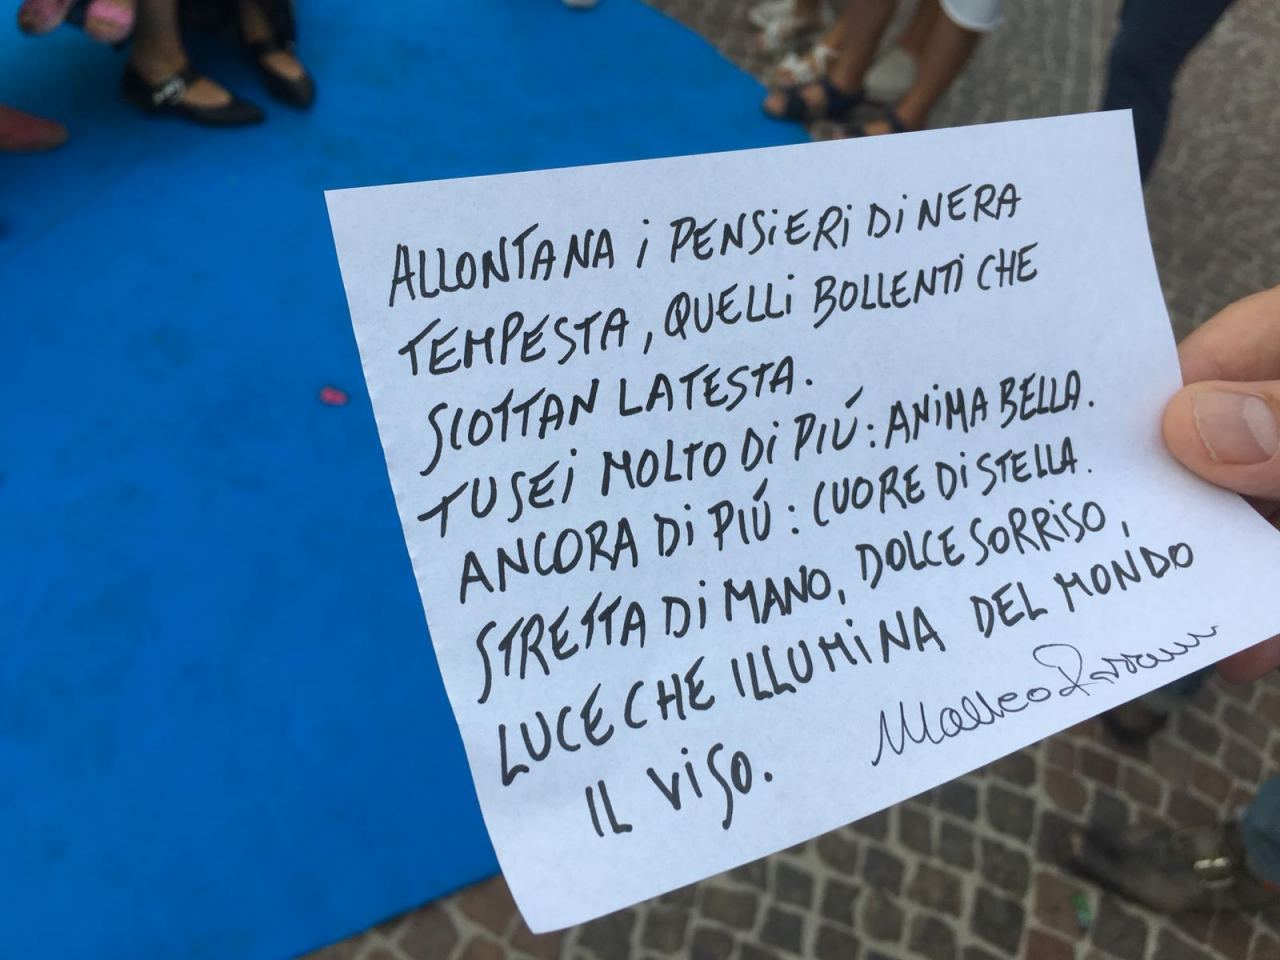 ALLONTANA i PENSiERi Di NERA
TEMPESTA, QUELLi BOLLENTi CHE
SCOTTAN LA TESTA.
TU SEi MOLTO Di PIÚ: ANiMA BELLA.
ANCORA Di PIÚ: CUORE Di STELLA.
STRETTA Di MANO, DOLCE SORRISO,
LUCE CHE ILLUMiNA DEL MONDO
IL ViSO.
Matteo